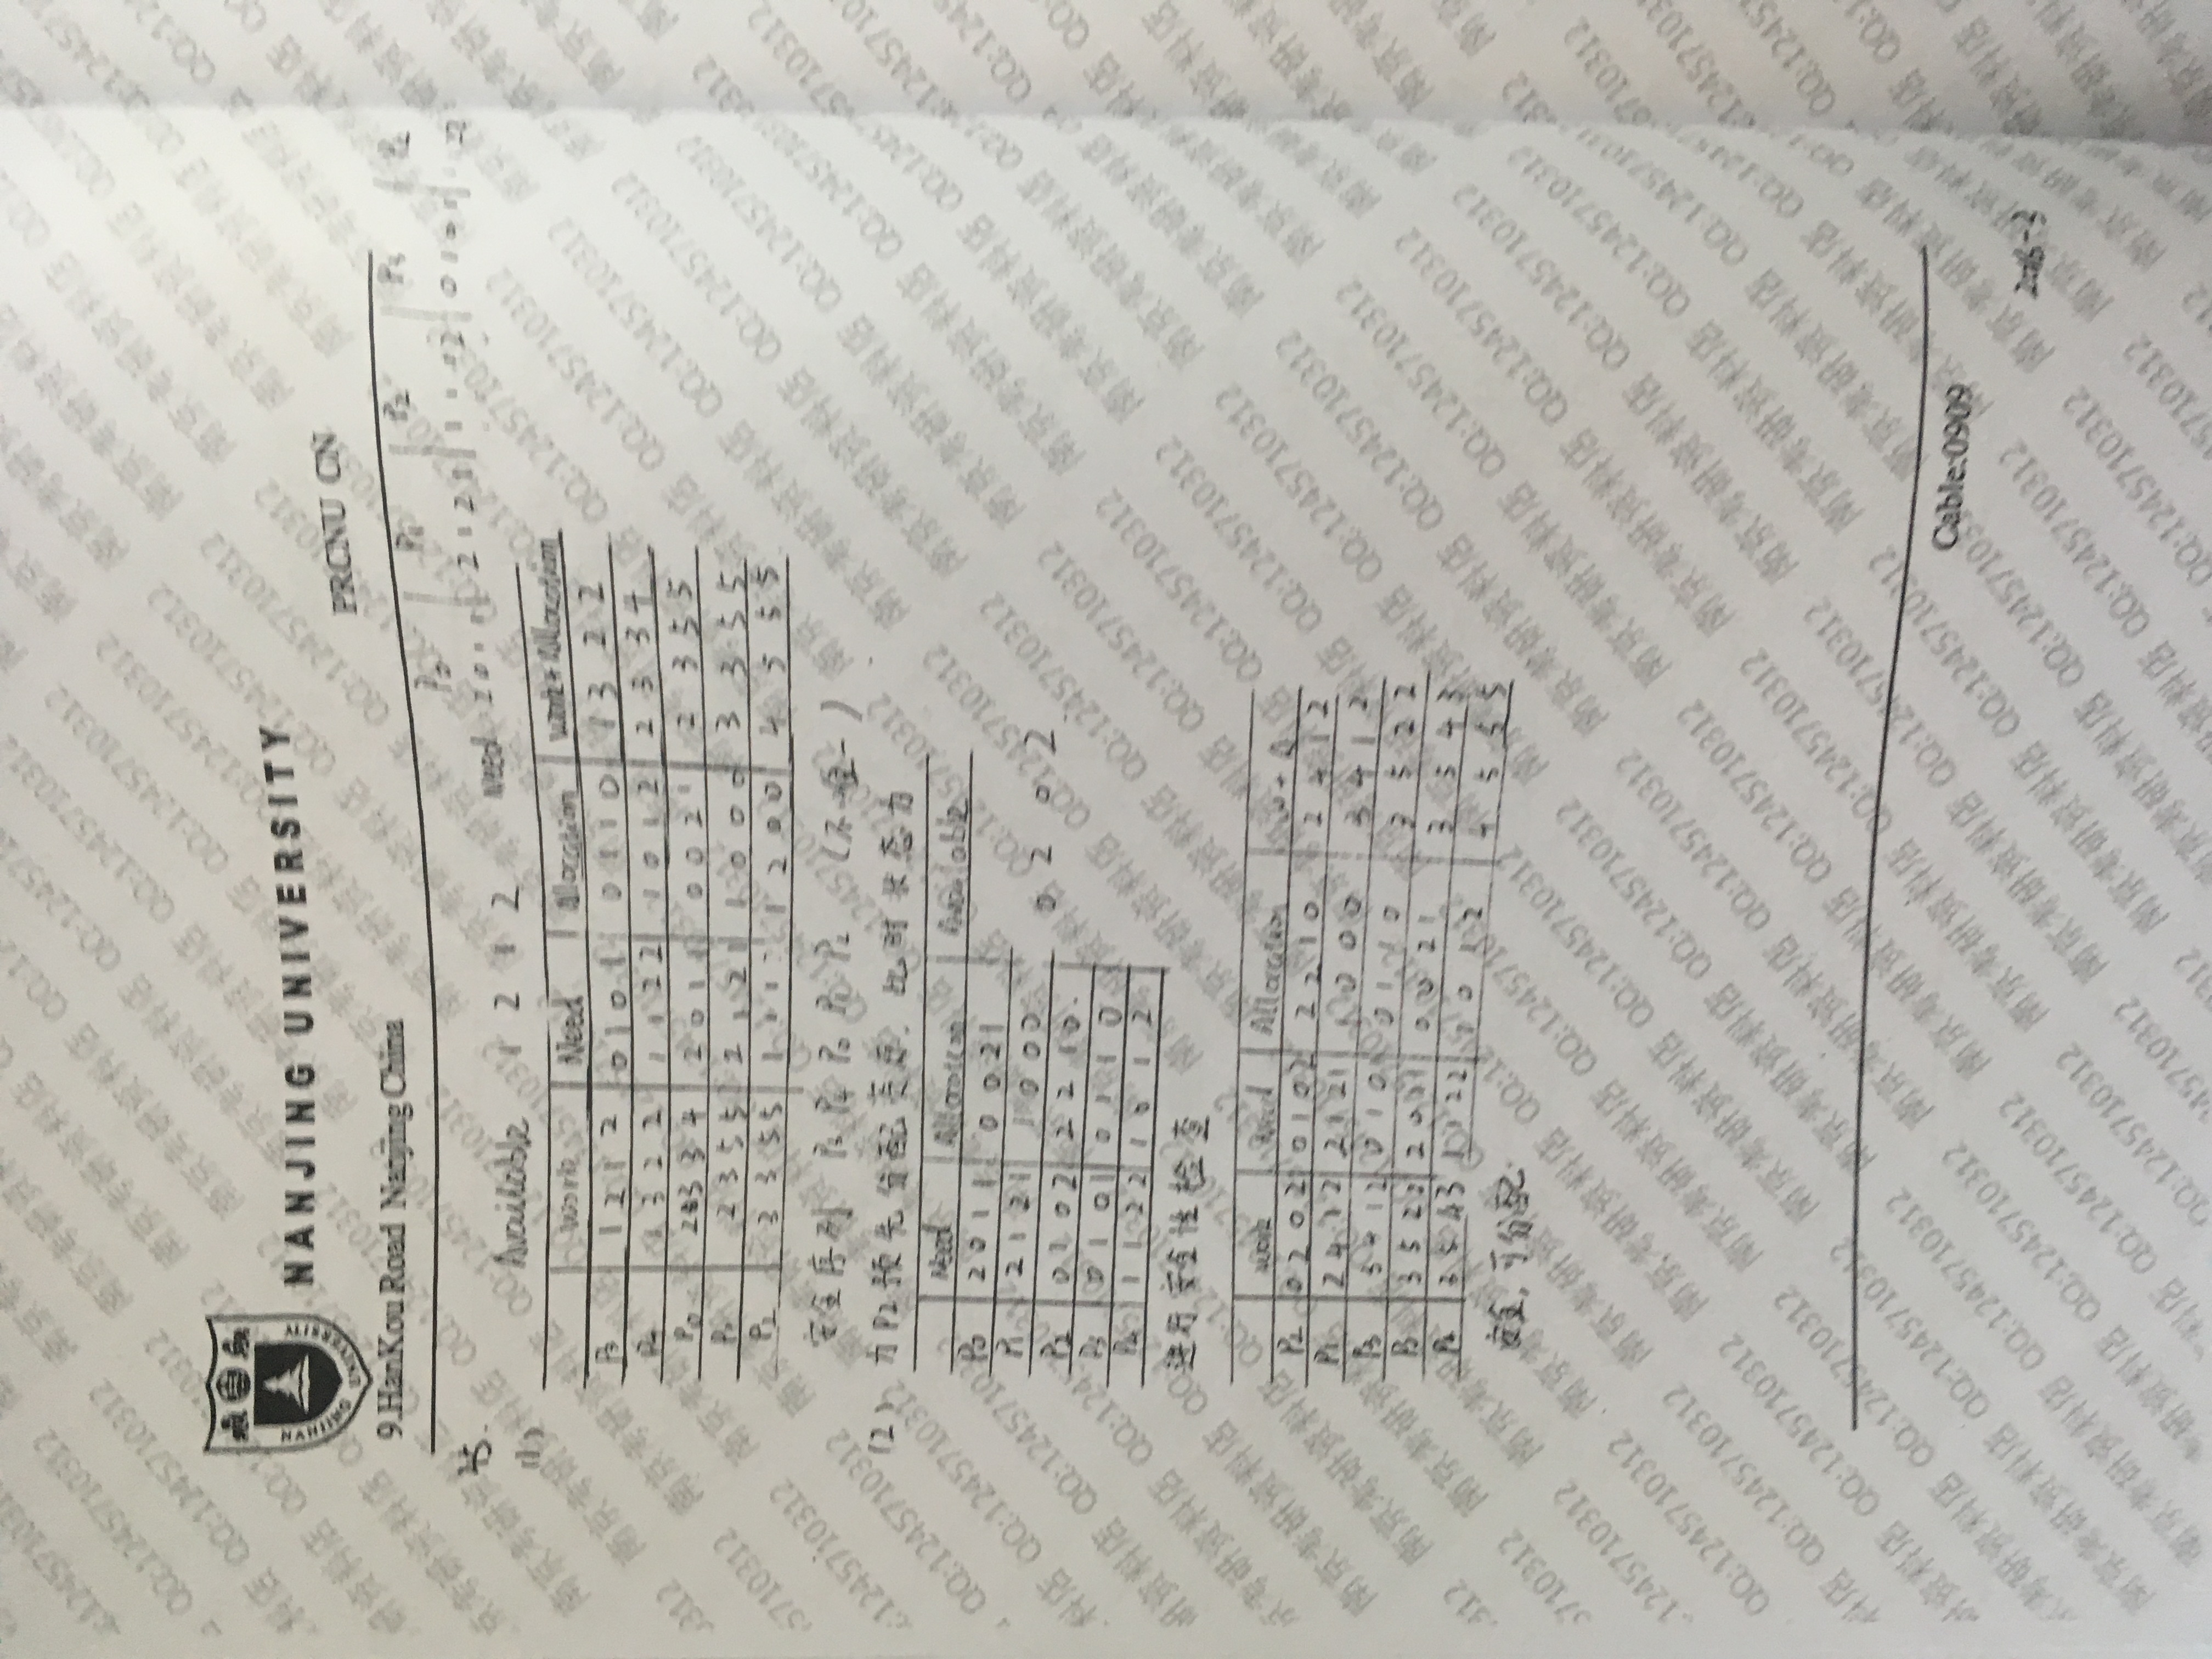 NANJING UNIVERSITY
PRCNU CN
9.HanKou Road Nanjing China
P0 P1 P2 P3 P4
45.
(1) Available 1 2 1 2 Need 2 0 1 1 2 1 2 1 0 1 0 1
Work Need Allocation Work+Allocation
P3 1 2 1 2 0 1 0 1 0 1 1 0 1 3 2 2
P4 1 3 2 2 1 1 2 2 1 0 1 2 2 3 3 4
P0 2 3 3 4 2 0 1 1 0 0 2 1 2 3 5 5
P1 2 3 5 5 2 1 2 1 1 0 0 0 3 3 5 5
P2 3 3 5 5 1 1 1 1 2 0 0 4 5 5 5
安全序列 P3 P4 P0 P1 P2 (不唯一)
(2) 为P2预先分配资源. 此时状态为
Need Allocation Available
P0 2 0 1 1 0 0 2 1
P1 2 1 2 1 1 0 0 0
0 2 0 2
P2 0 1 0 2 2 2 1 0
P3 0 1 0 1 0 1 1 0
P4 1 1 2 2 1 0 1 2
进行安全性检查
Work Need Allocation W+A
P2 0 2 0 2 0 1 0 2 2 2 1 0 2 4 1 2
P1 2 4 1 2 2 1 2 1 1 0 0 0 3 4 1 2
P3 3 4 1 2 0 1 0 0 1 1 0 3 5 2 2
3 5 2 2 2 0 1 1 0 0 2 1 3 5 4 3
P4 3 5 4 3 1 1 2 2 1 0 1 2 4 5 5 5
安全,可分配.
Cable:0909
南京考研资料店 QQ:1245710312